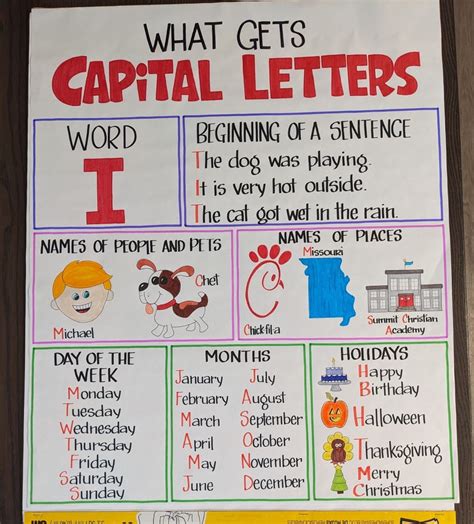 WHAT GETS
CAPITAL LETTERS
WORD
I
BEGINNING OF A SENTENCE
The dog was playing.
It is very hot outside.
The cat got wet in the rain.
NAMES OF PEOPLE AND PETS
Michael
Chet
NAMES OF PLACES
Chickfila
Missouri
Summit Christian
Academy
DAY OF THE
WEEK
Monday
Tuesday
Wednesday
Thursday
Friday
Saturday
Sunday
MONTHS
January
February
March
April
May
June
July
August
September
October
November
December
HOLIDAYS
Happy
Birthday
Halloween
Thanksgiving
Merry
Christmas